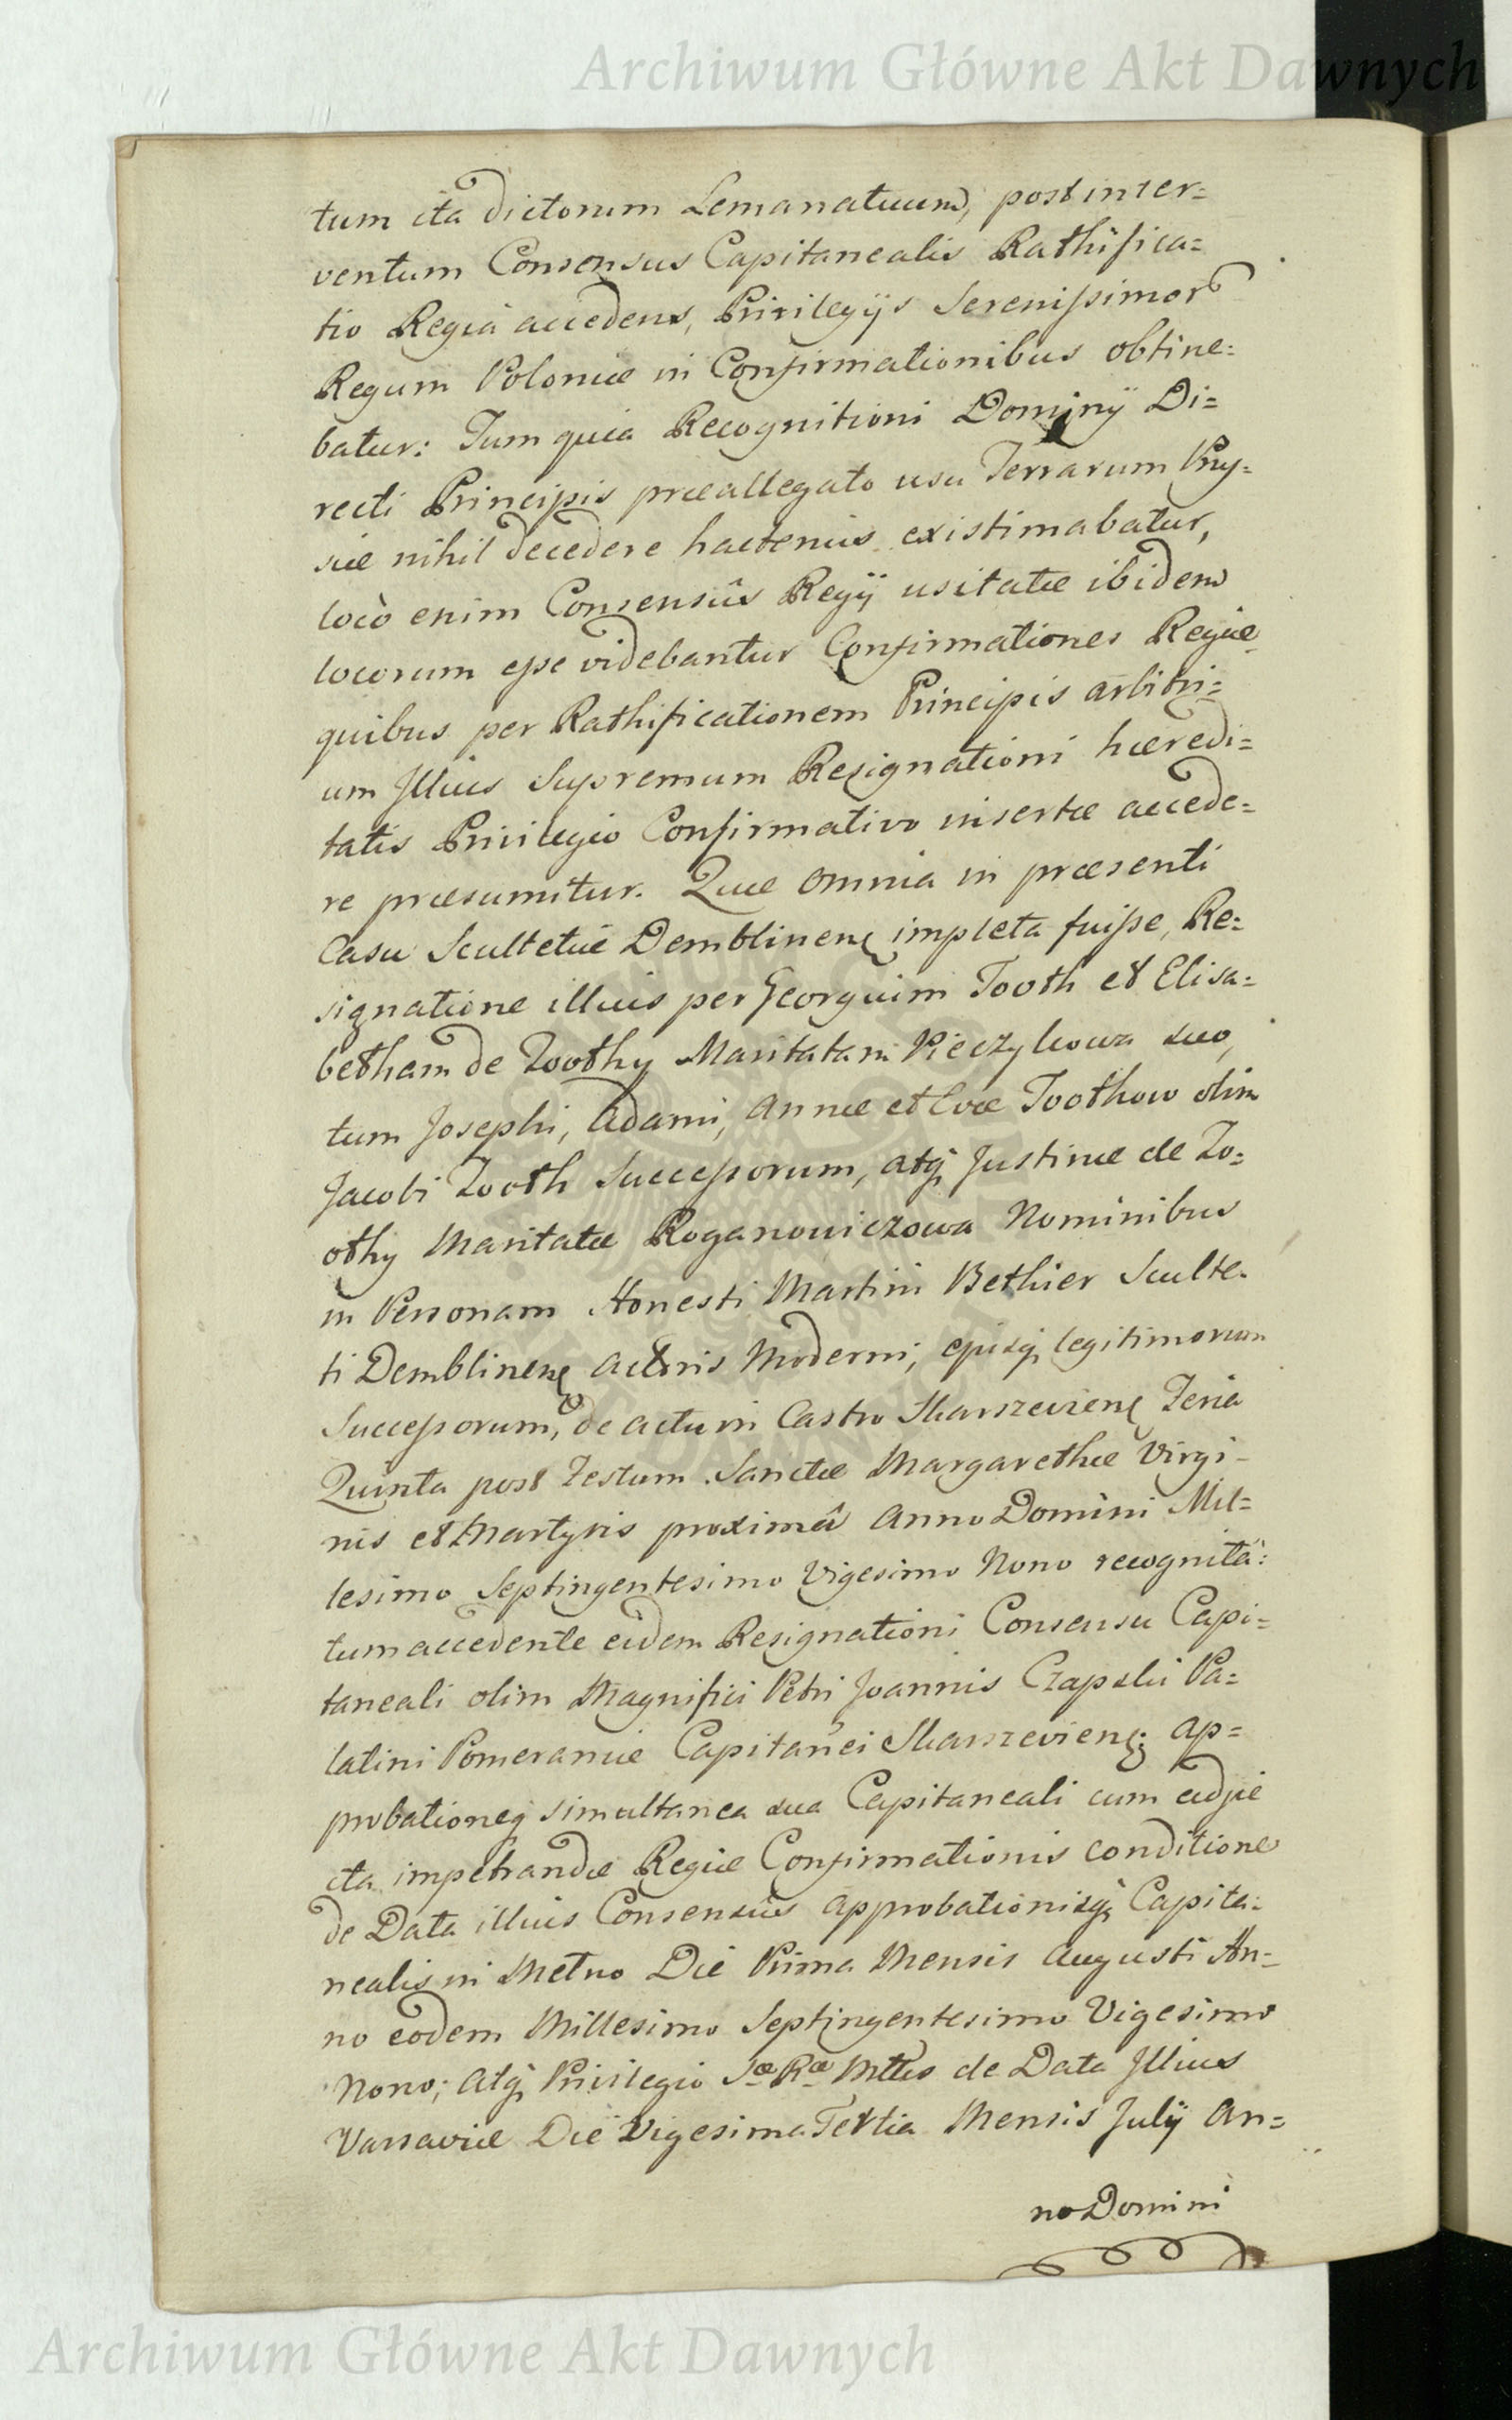 Archiwum Główne Akt Dawnych
tum ita dictorum Lemanatuum, post inter=
ventum Consensus Capitanealis Rathifica=
tio Regia accedens, Privilegijs Serenissimor
Regum Poloniæ in Confirmationibus obtine=
batur: Tum quia Recognitioni Dominij Di=
recti Principis præallegato usu Terrarum Pruſ=
siæ nihil decedere hactenus existimabatur,
locò enim Consensûs Regij usitatæ ibidem
locorum eſse videbantur Confirmationes Regiæ
quibus per Rathificationem Principis arbitri=
um Illius Supremum Resignationi hæredi=
tatis Privilegio Confirmativo insertæ accede=
re præsumitur. Quæ omnia in præsenti
Casu Scultetiæ Demblinenſ impleta fuiſse, Re=
signatione illius per Georgium Tooth et Elisa=
betham de Toothy Maritatam Pieczykowa suo,
tum Josephi, Adami, Annæ et Evæ Toothow olim
Jacobi Tooth Succeſsorum, atq Justinæ de To=
othy Maritatæ Roganowiczowa Nominibus
in Personam Honesti Martini Bethier Sculte=
ti Demblinenſ Actoris Moderni, ejusq legitimorum
Succeſsorum, de actu in Castro Skarszevienſ Feria
Quinta post Festum Sanctæ Margarethæ Virgi=
nis et Martyris proximâ Anno Domini Mil=
lesimo Septingentesimo Vigesimo Nono recognitâ:
tum accedente eidem Resignationi Consensu Capi=
taneali olim Magnifici Petri Joannis Czapski Pa=
latini Pomeraniæ Capitanei Skarszevienſ: ap=
probationeq simultanea sua Capitaneali cum adjec
ta impetrandæ Regiæ Confirmationis conditione
de Data illius Consensûs approbationisq Capita=
nealis in Metno Die Prima Mensis Augusti An=
no eodem Millesimo Septingentesimo Vigesimo
Nono; atq Privilegio Sæ Ræ Mttis de Data Illius
Varsaviæ Die Vigesima Tertia Mensis Julij An=
no Domini
Archiwum Główne Akt Dawnych